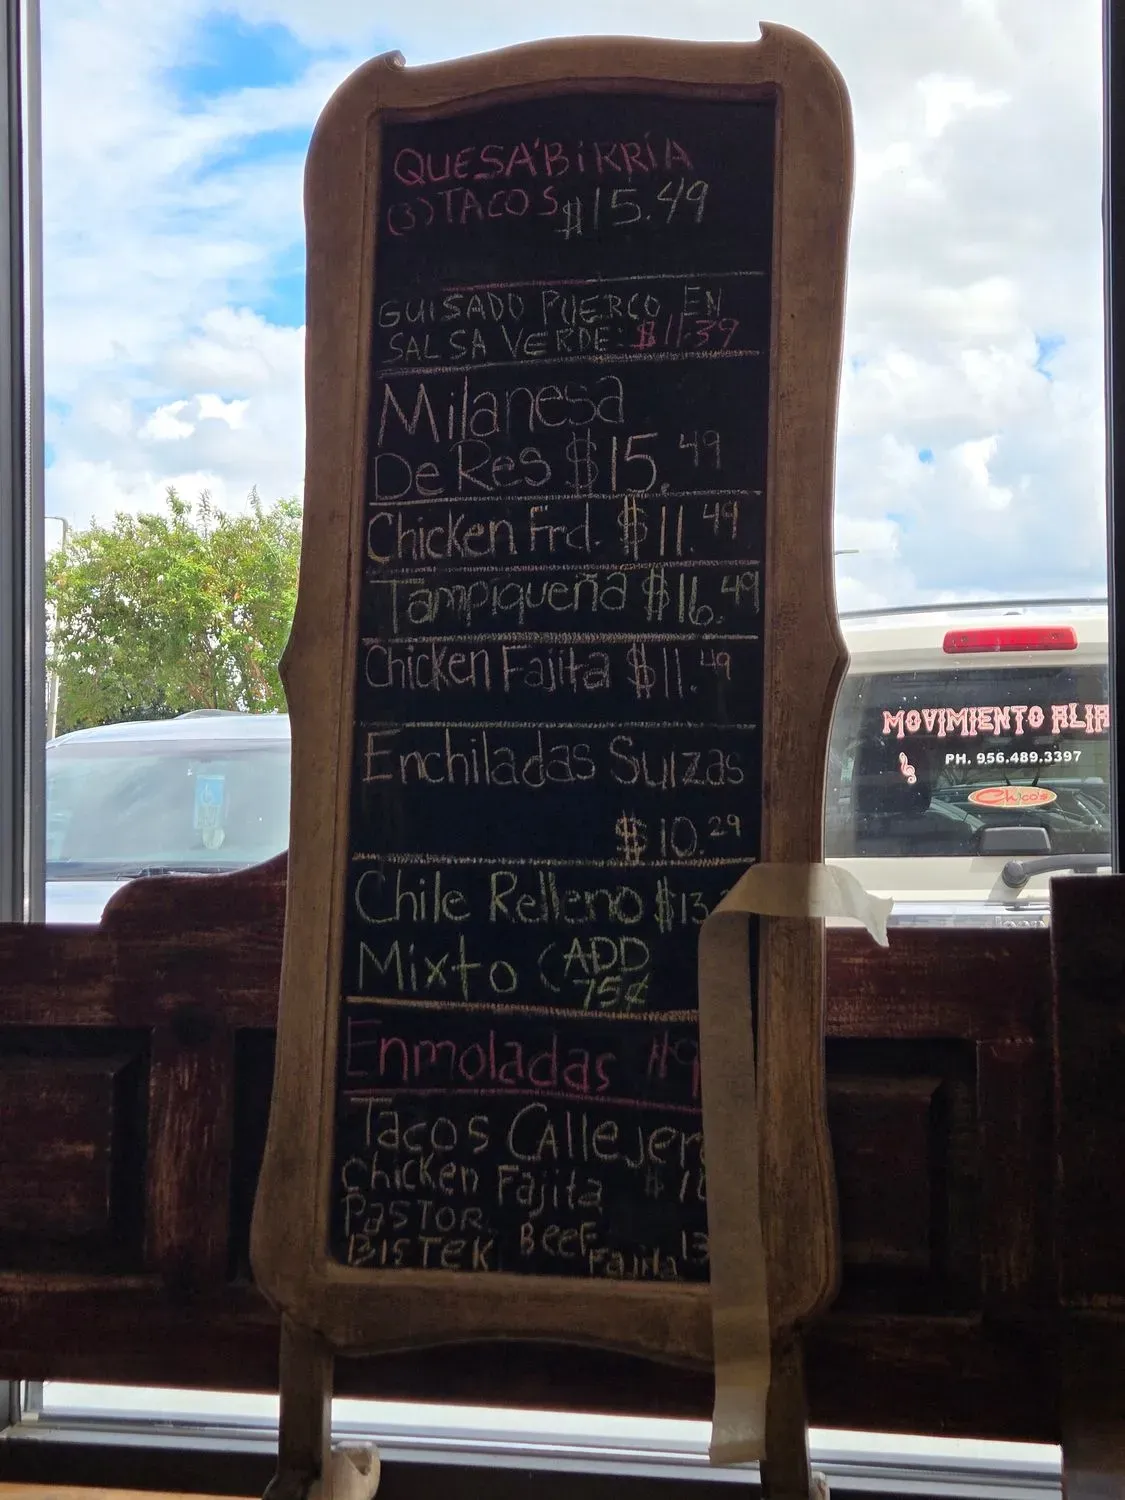 QUESA'BiRRIA
(3) TACOS $15.49
GUISADO PUERCO EN
SALSA VERDE: $11.39
Milanesa
De Res $15.49
Chicken Frd. $11.49
Tampiqueña $16.49
Chicken Fajita $11.49
Enchiladas Suizas
$10.29
Chile Relleno $13
Mixto (ADD
75¢
Enmoladas
Tacos Callejer
Chicken Fajita
PASTOR
BISTEK Beef
Fajita 13
MOVIMIENTO ALIA
PH. 956.489.3397
Chico's